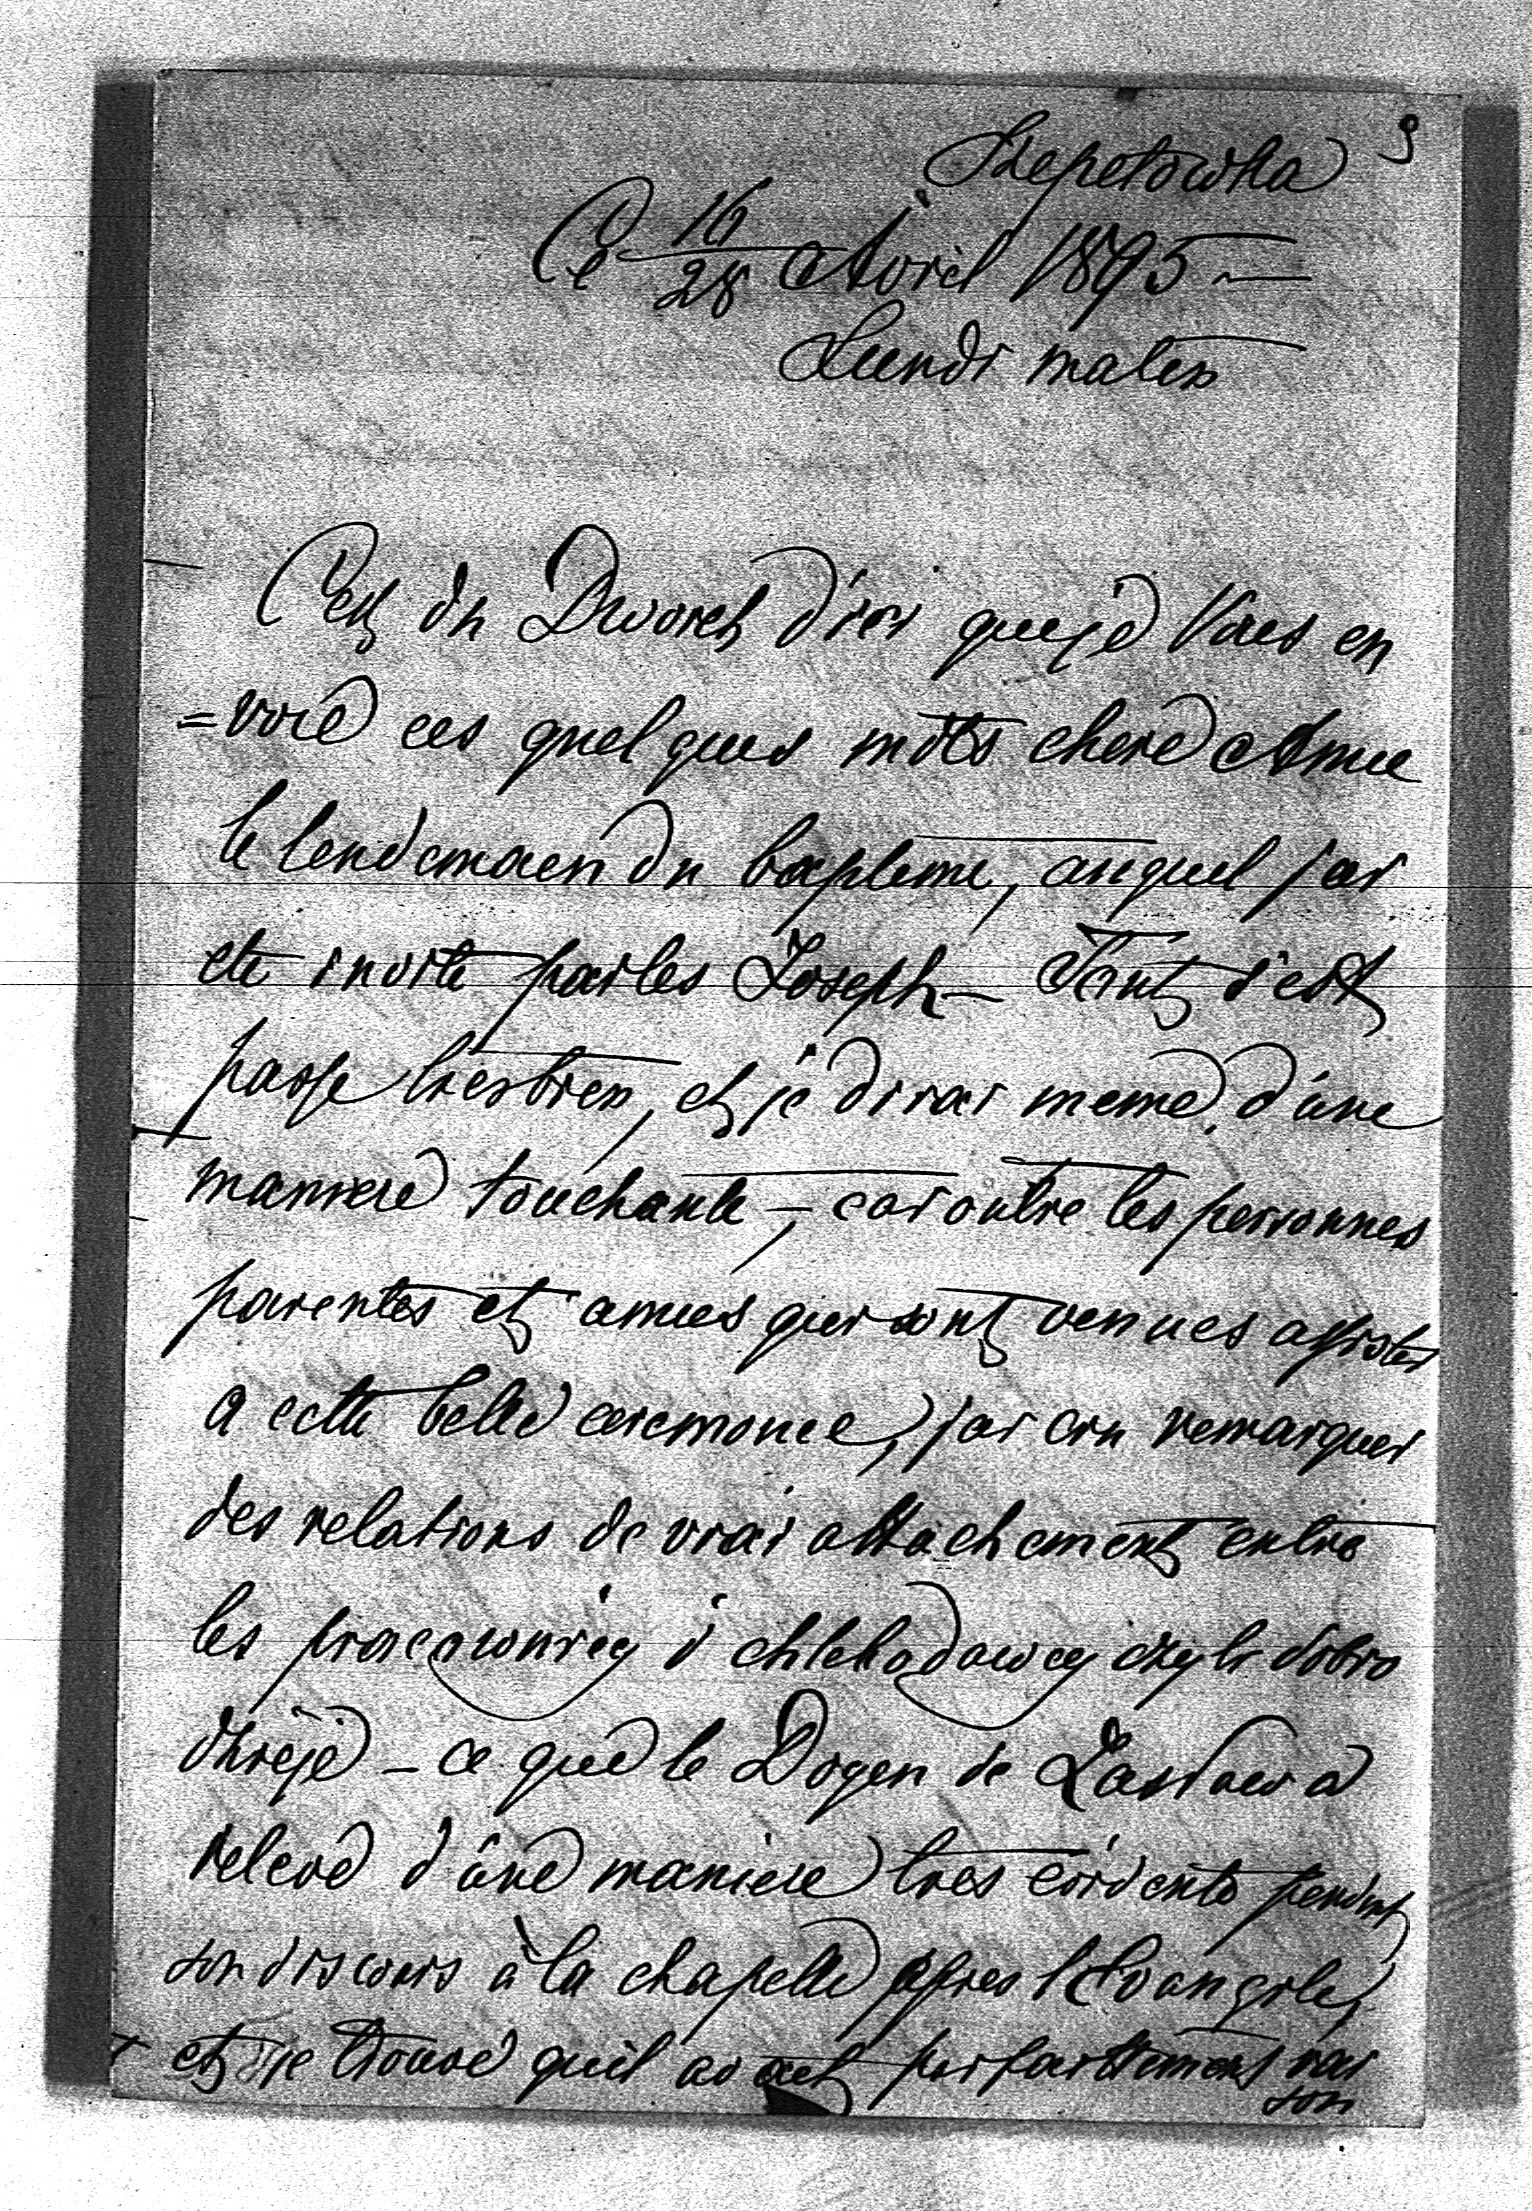 9
Szepetówka
Ce 16/28 Avril 1895 —
Lundi matin
C'est du Dworet d'ici que je Vous en
=voie ces quelques mots chere Amie
le lendemain du bapteme, auquel j'ai
ete invité par les Joseph — Tout s'est
passe tres bien, et je dirai meme, d'une
maniere touchante —, car outre les personnes
parentes et amies qui sont venues assister
a cette belle ceremonie, j'ai cru remarquer
des relations de vrai attachement entre
les pracownicy i chlebodawcy czyli dobro
dzieje — ce que le Doyen de Zaslaw a
releve d'une maniere tres evidente pendant
son discours à la chapelle apres l'Evangile,
et je trouve qu'il avait parfaitement rai
son